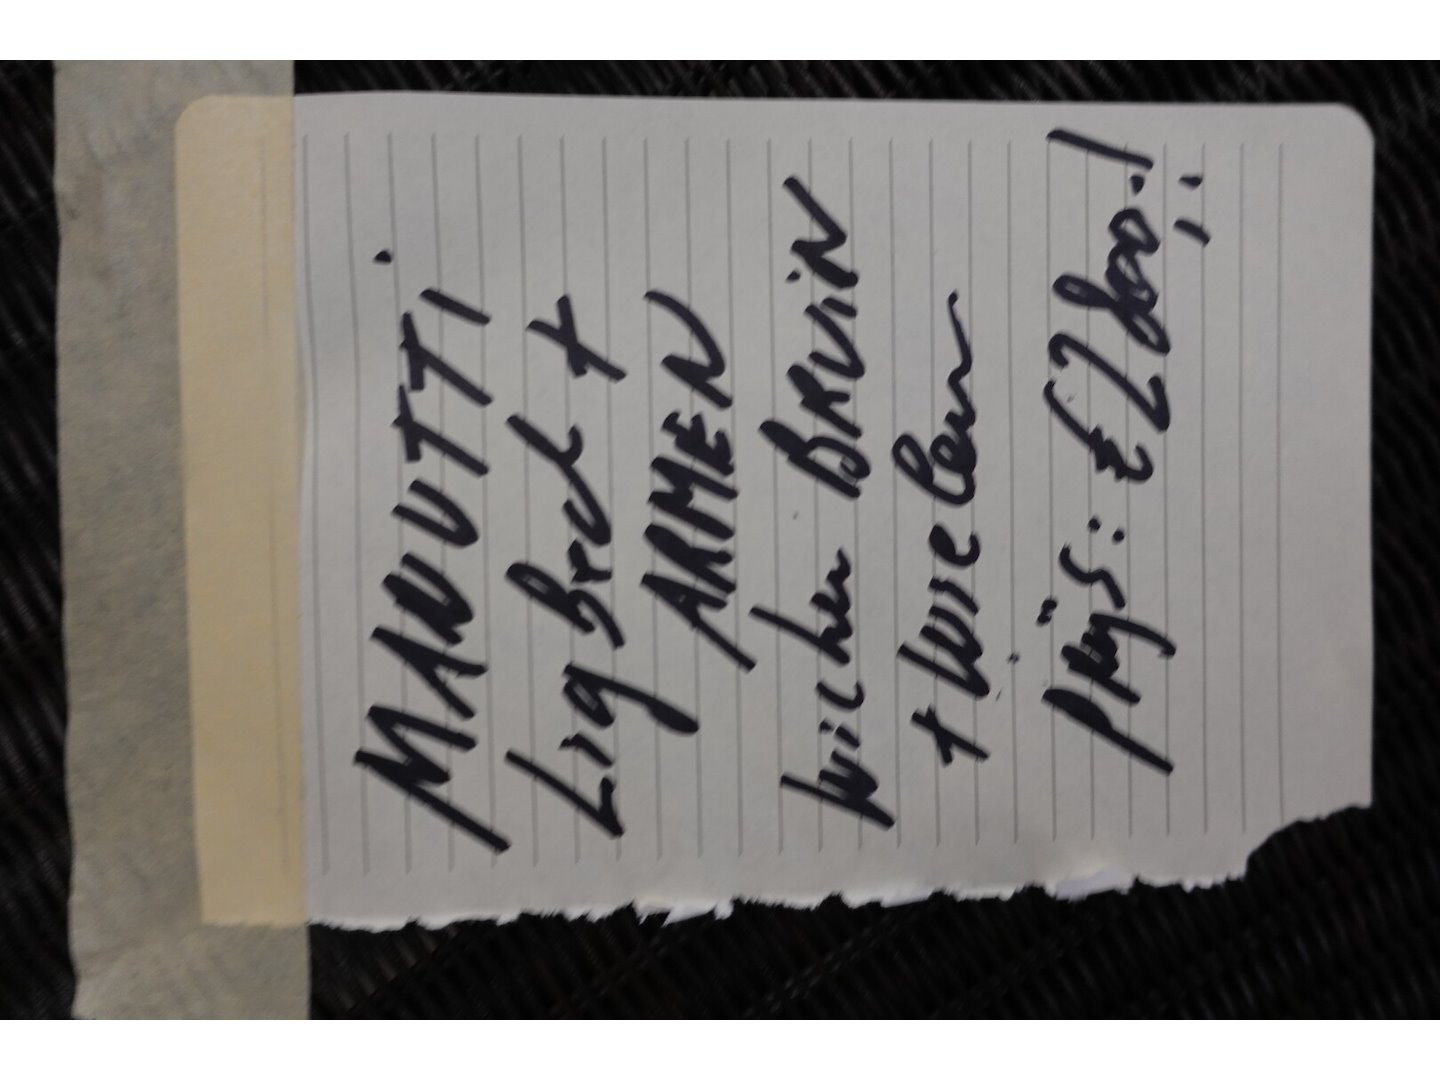 MANUTTI
Ligbed +
ARMEN
Wicker BRUIN
+ Wielen
prijs: € 2800.!